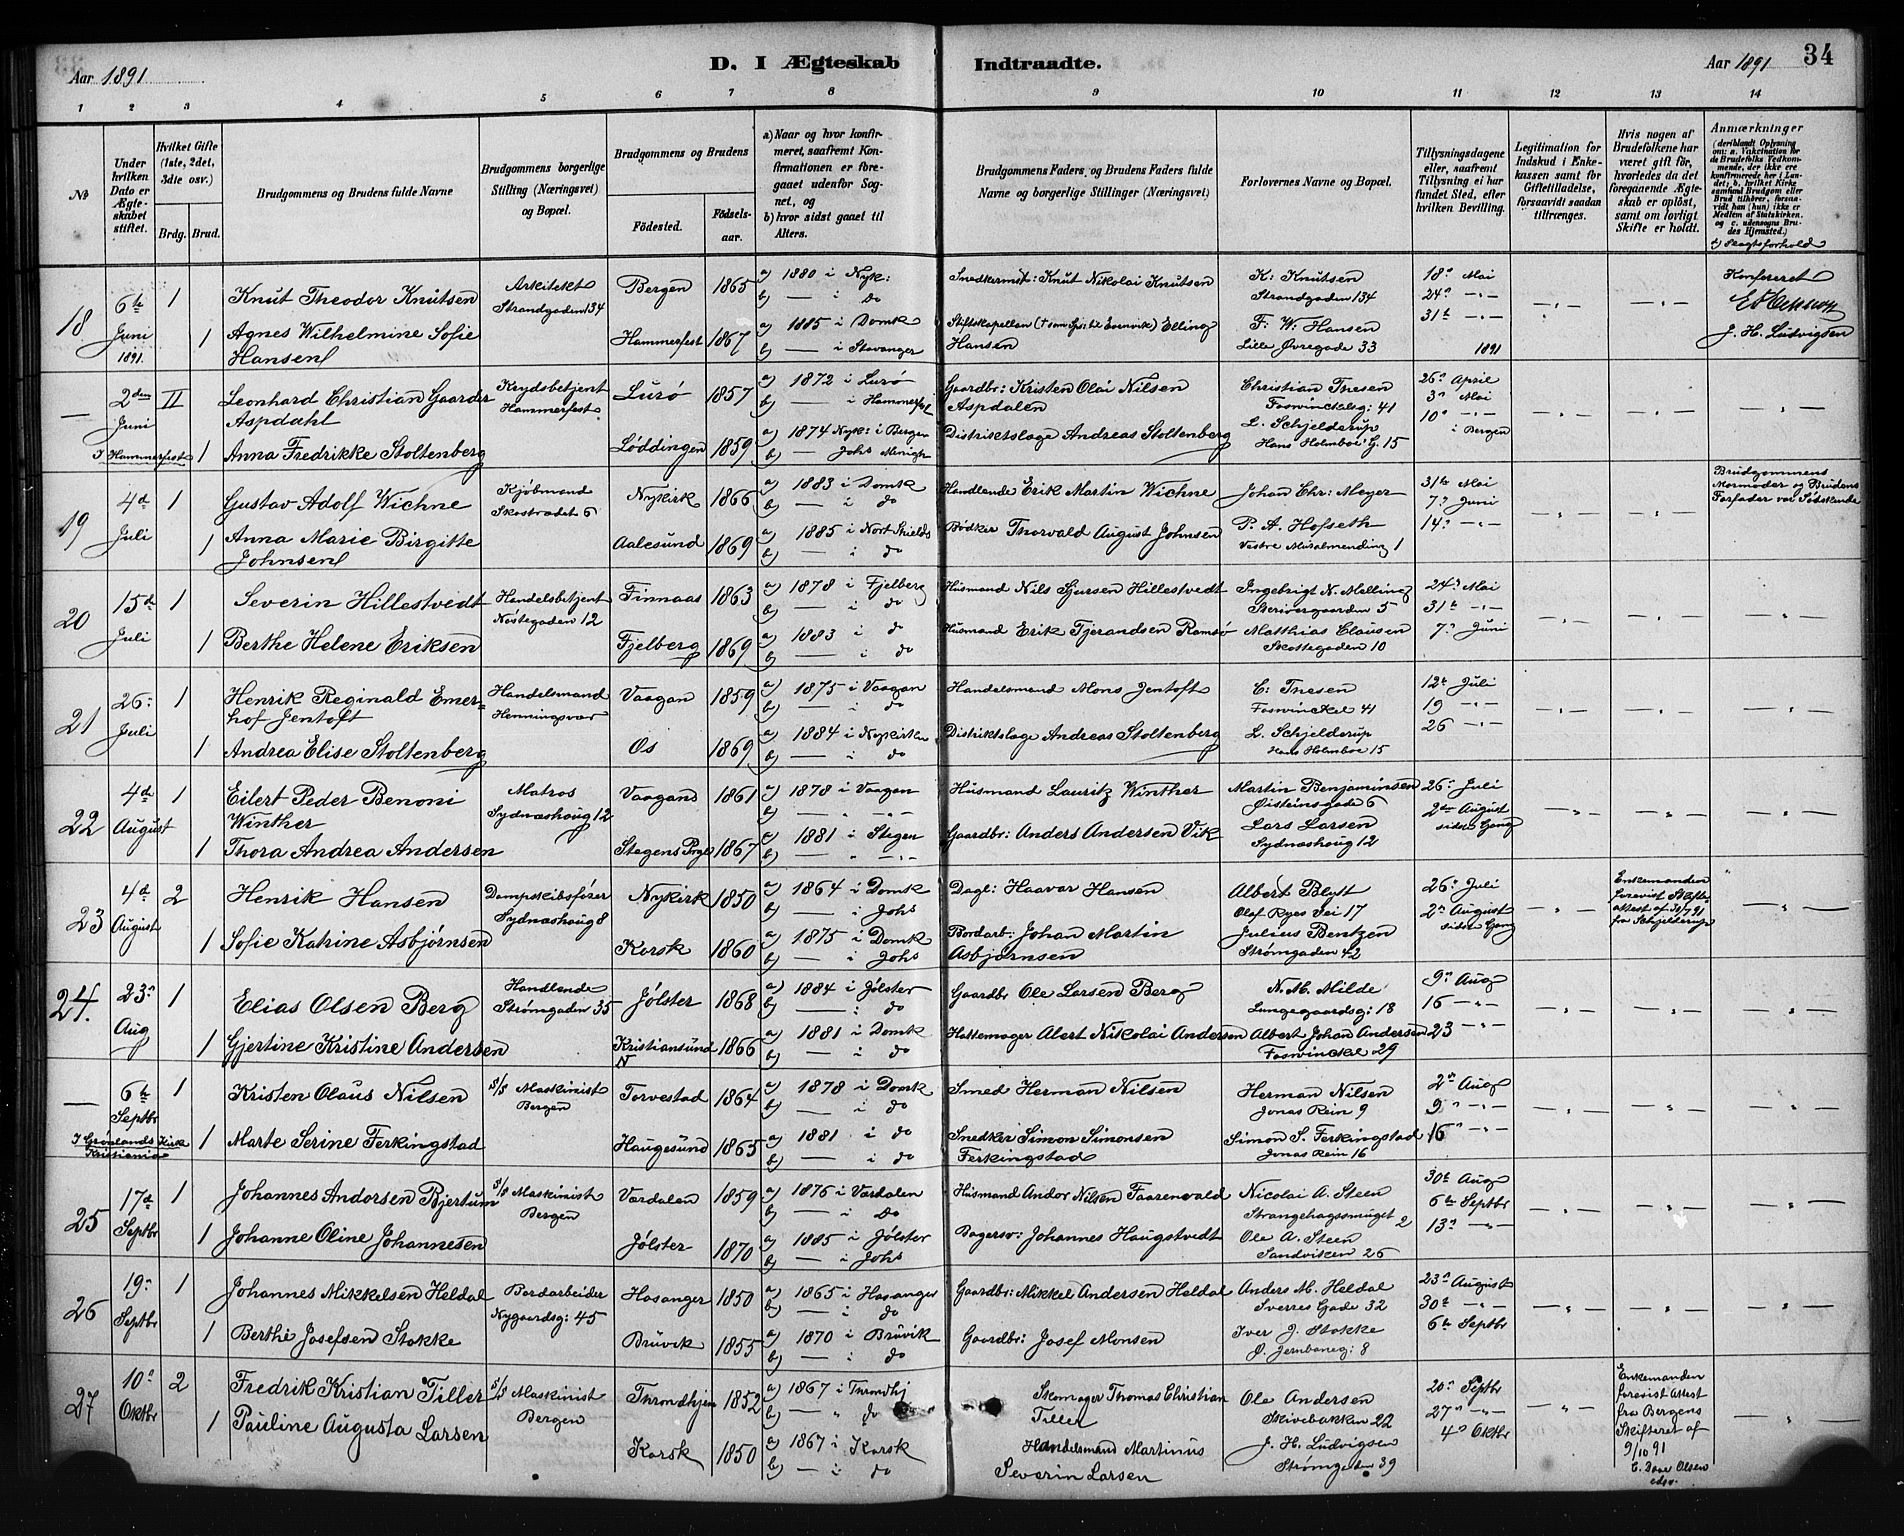 Aar 1891
D. I Ægteskab Indtraadte.
Aar 1891 34
1 2 3 4 5 6 7 8 9 10 11 12 13 14
№
Under hvilken Dato er Ægteskabet stiftet.
Hvilket Gifte (1ste, 2det, 3die osv.)
Brdg. Brud.
Brudgommens og Brudens fulde Navne
Brudgommens borgerlige Stilling (Næringsvei) og Bopæl.
Brudgommens og Brudens
Fødested.
Fødselsaar.
a) Naar og hvor konfirmeret, saafremt Konfirmationen er foregaaet udenfor Sognet, og
b) hvor sidst gaaet til Alters.
Brudgommens Faders og Brudens Faders fulde Navne og borgerlige Stillinger (Næringsvei)
Forlovernes Navne og Bopæl.
Tillysningsdagene eller, saafremt Tillysning ei har fundet Sted, efter hvilken Bevilling.
Legitimation for Indskud i Enkekassen samt for Giftetilladelse, forsaavidt saadan tiltrænges.
Hvis nogen af Brudefolkene har været gift før, hvorledes da det foregaaende Ægteskab er opløst, samt om lovligt Skifte er holdt.
Anmærkninger (deriblandt Oplysning om: a. Vakcination for de Brudefolks Vedkommende, der ikke ere konfirmerede her i Landet; b. hvilket Kirkesamfund Brudgom eller Brud tilhører, forsaavidt han (hun) ikke er Medlem af Statskirken, og c. udensogns Brudes Hjemsted.)
d) Slægtsforhold
18
6te Juni 1891.
1
Knut Theodor Knutsen
Arkitekt Strandgaden 134
Bergen 1865
a) 1880 i Nyk:
b) — i do
Snedkermst: Knut Nikolai Knutsen
K: Knutsen
Strandgaden 134
18de Mai
24de -"-
31te
— " —
— " —
Konfereret
J. H. Ludvigsen
1
Agnes Wilhelmine Sofie Hansen
Hammerfest 1867
a) 1885 i Domk
b) — i Stavanger
Stiftskapellan Elling Hansen
F: W: Hansen
Lille Øvregade 33
1891
—
2den Juni
I Hammerfest
II
Leonhard Christian Gaarder Aspdahl
Krydsbetjent Hammerfest
Lurø 1857
a) 1872 i Lurø
b) — i Hammerfest
Gaardbr: Kristen Olai Nilsen Aspdalen
Christian Thesen
Foswinckelsg: 41
26de April
3de Mai
10de -"-
i Bergen
— " —
— " —
— " —
1
Anna Fredrikke Stoltenberg
Løddingen 1859
a) 1874 Nyk: i Bergen
b) — Johs Menigh
Distriktslæge Andreas Stoltenberg
L. Schjelderup
Hans Holmboe G. 15
19
4de Juli
1
Gustav Adolf Wichne
Kjøbmand Skostrædet 6
Nykirk 1866
a) 1883 i Domk
b) — i do
Handlende Erik Martin Wichne
Johan Chr: Meyer
31te Mai
7de Juni
14de -"-
— " —
— " —
Brudgommens Mormoder og Brudens Farfader var Sødskende
1
Anna Marie Birgitte Johnsen
Aalesund 1869
a) 1885 i Nort Shields
b) — i do
Bødker Thorvald August Johnsen
P. A. Hofseth
Vestre Muralmending 1
20
15de Juli
1
Severin Hillestvedt
Handelsbetjent Nøstegaden 12
Finnaas 1863
a) 1878 i Fjelberg
b) — i do
Husmand Nils Sjursen Hillestvedt
Ingebrigt N. Melling
Skrivergaarden 5
24de Mai
31te -"-
7de Juni
— " —
— " —
— " —
1
Berthe Helene Eriksen
Fjelberg 1869
a) 1883 i do
b) — i do
Husmand Erik Tjerandsen Ramsø
Matthias Clausen
Skottegaden 10
21
26: Juli
1
Henrik Reginald Emerhof Jentoft
Handelsmand Henningsvær
Vaagan 1859
a) 1875 i Vaagan
b) — i do
Handelsmand Mons Jentoft
C: Thesen
Foswinckel 41
12te Juli
19 -"-
26
— " —
— " —
— " —
1
Andrea Elise Stoltenberg
Os 1869
a) 1884 i Nykirken
b) — i do
Distriktslæge Andreas Stoltenberg
L. Schjelderup
Hans Holmboe 15
22
4de August
1
Eilert Peder Benoni Winther
Matros Sydnæshaug 12
Vaagand 1861
a) 1878 i Vaagan
b) — " -"-
Husmand Lauritz Winther
Martin Benjaminsen
Østeinsgade 6
26de Juli
2den August
sidste Gang
— " —
— " —
— " —
1
Thora Andrea Andersen
Stegens Prgl 1867
a) 1881 i Stegen
b) — " -"-
Gaardbr: Anders Andersen Vik
Lars Larsen
Sydnæshaug 12
23
4de August
2
Henrik Hansen
Dampskibsfører Sydnæshaug 8
Nykirk 1850
a) 1864 i Domk
b) — i Johs
Dagl: Haavar Hansen
Albert Blytt
Olaf Ryes Vei 17
26de Juli
2den August
sidste Gang
— " —
Enkemanden forevist Skifteattest af 31/7 91 fra Schjelderup
— " —
1
Sofie Katrine Asbjørnsen
Korsk 1860
a) 1875 i Domk
b) — i Johs
Bordarb: Johan Martin Asbjørnsen
Julius Bentzen
Strømgaden 42
24.
23de Aug
1
Elias Olsen Berg
Handlende Strømgaden 35
Jølster 1868
a) 1884 i Jølster
b) — : do
Gaardbr Ole Larsen Berg
N. M. Milde
Lungegaardsg: 18
9de Aug
16 -"-
23 -"-
— " —
— " —
— " —
1
Gjertine Kristine Andersen
Kristiansund N 1866
a) 1881 i Domk
b) — i do
Hattemager Alert Nikolai Andersen
Albert Johan Andersen
Foswinckel 29
—
6te Septbr
I Grønlands Kirk Kristiania
1
Kristen Olaus Nilsen
S/S Maskinist Bergen
Torvestad 1864
a) 1878 i Domk
b) — i do
Smed Herman Nilsen
Herman Nilsen
Jonas Rein 9
2den Aug
9de -"-
16de -"-
— " —
— " —
— " —
1
Marte Serine Ferkingstad
Haugesund 1865
a) 1881 i do
b) — i do
Snedker Simon Simonsen Ferkingstad
Simon S. Ferkingstad
Jonas Rein 16
25
17de Septbr
1
Johannes Andorsen Bjertum
S/S Maskinist Bergen
Værdalen 1859
a) 1876 i Værdalen
b) — " do
Husmand Andor Nilsen Faarenvald
Nicolai A. Steen
Strangehagssmuget 2
30te Aug
6te Septbr
13de -"-
— " —
— " —
— " —
1
Johanne Oline Johannesen
Jølster 1870
a) 1885 i Jølster
b) — i Johs
Bagersv: Johannes Haugstvedt
Ole A. Steen
Sandviken 26
26
19de Septbr
1
Johannes Mikkelsen Heldal
Bordarbeider Nygaardsg: 45
Hosanger 1850
a) 1865 i Hosanger
b) — i do
Gaardbr: Mikkel Andersen Heldal
Anders M. Heldal
Sverres Gade 32
23de August
30te -"-
6te Septbr
— " —
— " —
— " —
1
Berthe Josefsen Stokke
Bruvik 1855
a) 1870 i Bruvik
b) — i do
Gaardbr: Josef Monsen
Iver J. Stokke
Ø. Jernbaneg: 8
27
10de Oktbr
2
Fredrik Kristian Tiller
S/S Maskinist Bergen
Throndhjem 1852
a) 1867 i Throndhj
b) — " do
Skomager Thomas Christian Tiller
Ole Andersen
Skivebakken 22
20de Septbr
27de -"-
4de Oktbr
— " —
Enkemanden forevist Attest fra Bergens Skifteret af 9/10 91
— " —
1
Pauline Augusta Larsen
Korsk 1850
a) 1867 i Korsk
b) — i do
Handelsmand Martinus Severin Larsen
J. H. Ludvigsen
Strømgaden 39